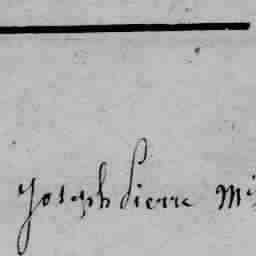 Joseph Pierre Mi